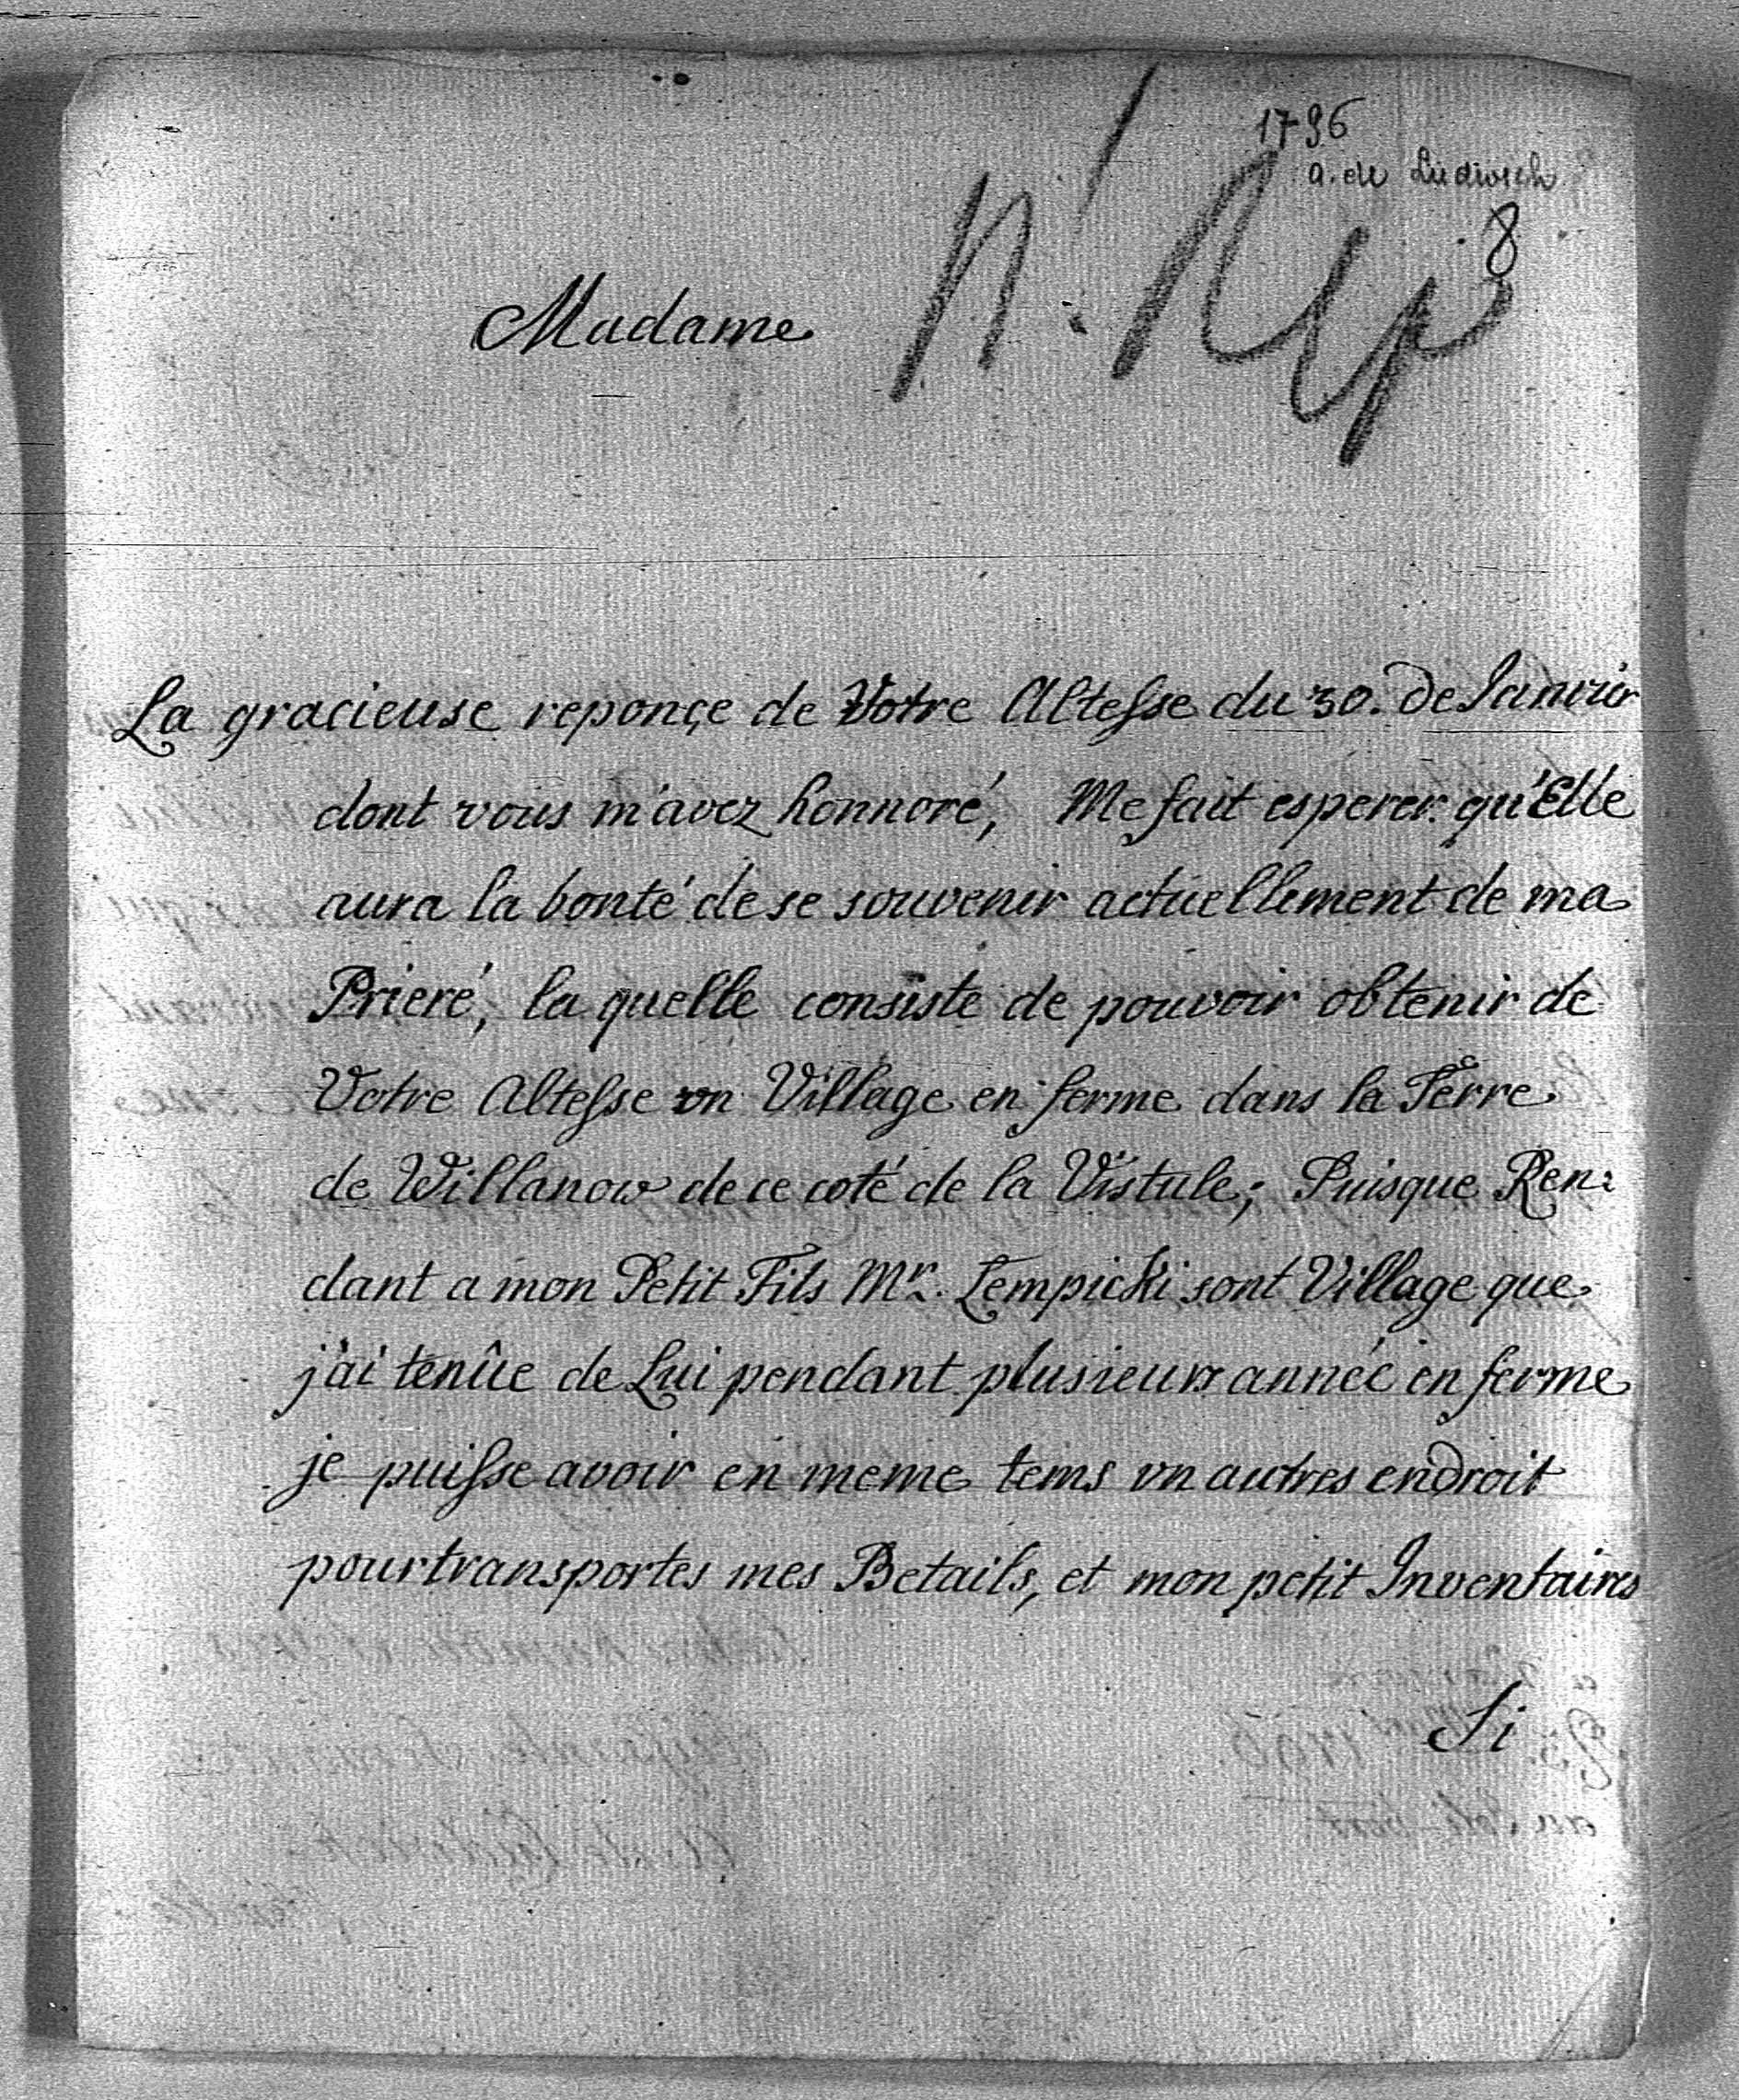 1796
a. de Ludwich
8
N. Rep
Madame
La gracieuse reponçe de Votre Altesse du 30. De Janvier
dont vous m'avez honnoré, Me fait esperer qu'Elle
aura la bonté de se souvenir actuellement de ma
Prieré, la quelle consiste de pouvoir obtenir de
Votre Altesse un Village en ferme dans la Terre
de Willanow de ce coté de la Vistule; Puisque Ren:
dant a mon Petit Fils Mr. Lempicki sont Village que
j'ai tenûe de Lui pendant plusieurs année en ferme
je puisse avoir en meme tems un autres endroit
pour transportes mes Betails, et mon petit Inventaires
Si